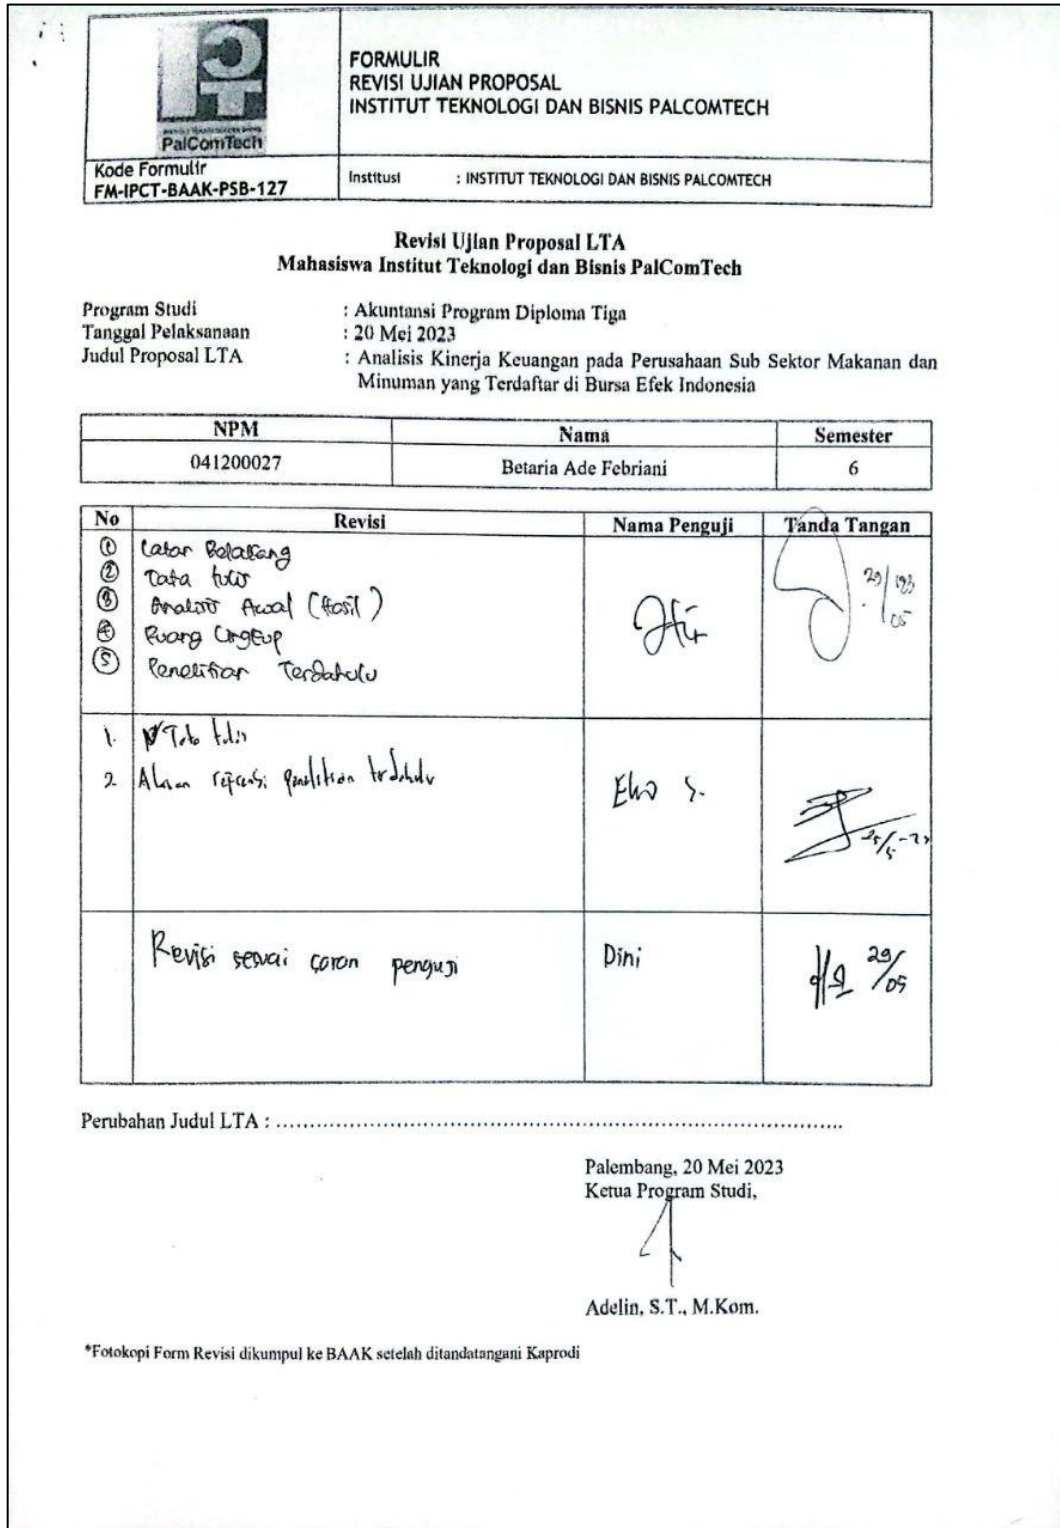 PalComTech
FORMULIR
REVISI UJIAN PROPOSAL
INSTITUT TEKNOLOGI DAN BISNIS PALCOMTECH
Kode Formulir
FM-IPCT-BAAK-PSB-127
Institusi : INSTITUT TEKNOLOGI DAN BISNIS PALCOMTECH
Revisi Ujian Proposal LTA
Mahasiswa Institut Teknologi dan Bisnis PalComTech
Program Studi : Akuntansi Program Diploma Tiga
Tanggal Pelaksanaan : 20 Mei 2023
Judul Proposal LTA : Analisis Kinerja Keuangan pada Perusahaan Sub Sektor Makanan dan
Minuman yang Terdaftar di Bursa Efek Indonesia
NPM Nama Semester
041200027 Betaria Ade Febriani 6
No Revisi Nama Penguji Tanda Tangan
① Latar Belakang
② Tata tulis
③ Analisis Awal (Hasil)
④ Ruang Lingkup
⑤ Penelitian Terdahulu
29/05
1. Tata tulis
2. Alasan referensi penelitian terdahulu
Eko S.
25/5-23
Revisi sesuai saran penguji Dini 29/05
Perubahan Judul LTA : ....................................................................................
Palembang, 20 Mei 2023
Ketua Program Studi,
Adelin, S.T., M.Kom.
*Fotokopi Form Revisi dikumpul ke BAAK setelah ditandatangani Kaprodi